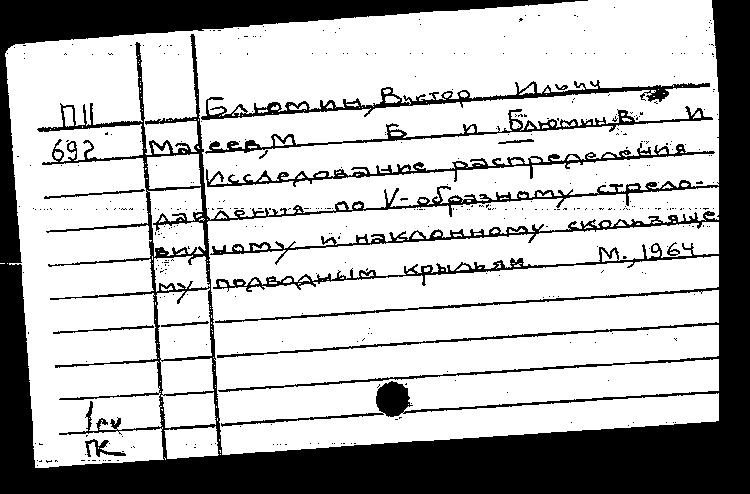 П11 Блюмин, Виктор Ильич
692 Масеев, М Б и Блюмин, В. И
Исследование распределения
давления по V-образному стрело-
видному и наклонному скользяще
му подводным крыльям. М., 1964
1
ПК